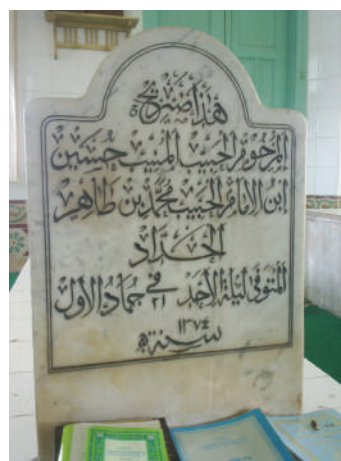 هذا ضريح
المرحوم الحبيب المنيب حسين
ابن الامام الحبيب محمد بن طاهر
الحداد
المتوفى ليلة الأحد ٢١ في جماد الأول
سنة ١٣٧٤ ه